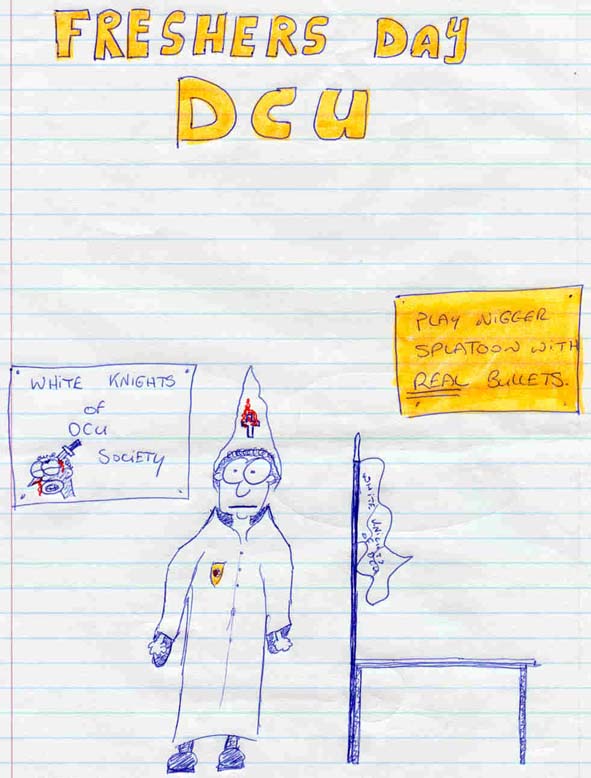 FRESHERS DAY
DCU
PLAY NIGGER
SPLATOON WITH
REAL BULLETS.
WHITE KNIGHTS
OF
DCU
SOCIETY
WHITE KNIGHTS
OF DCU